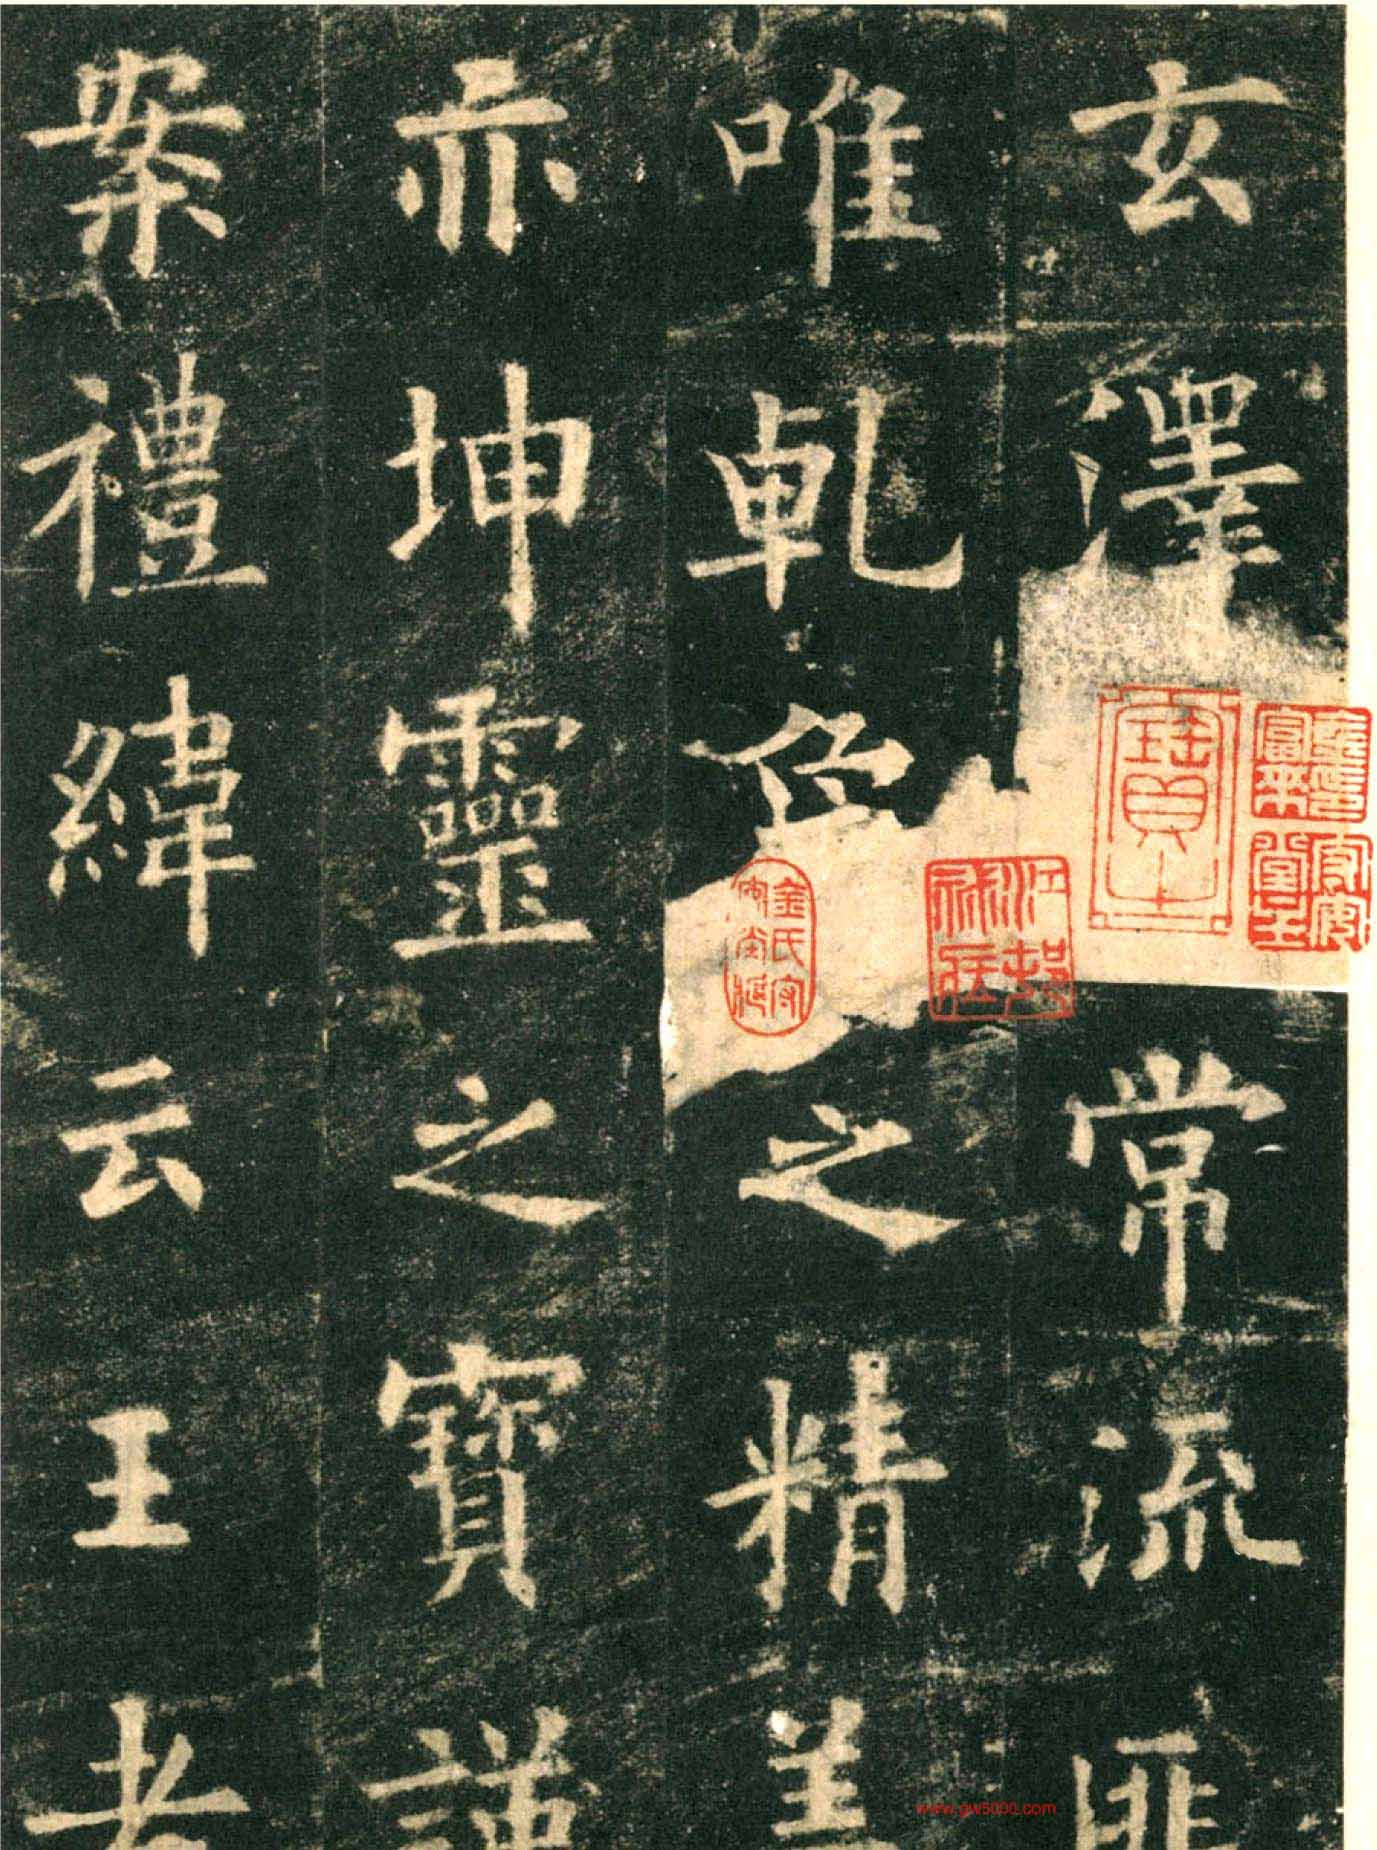 玄澤常流匪
唯乹象之精盖
亦坤靈之寶謹
案禮緯云王者
www.gw5000.com